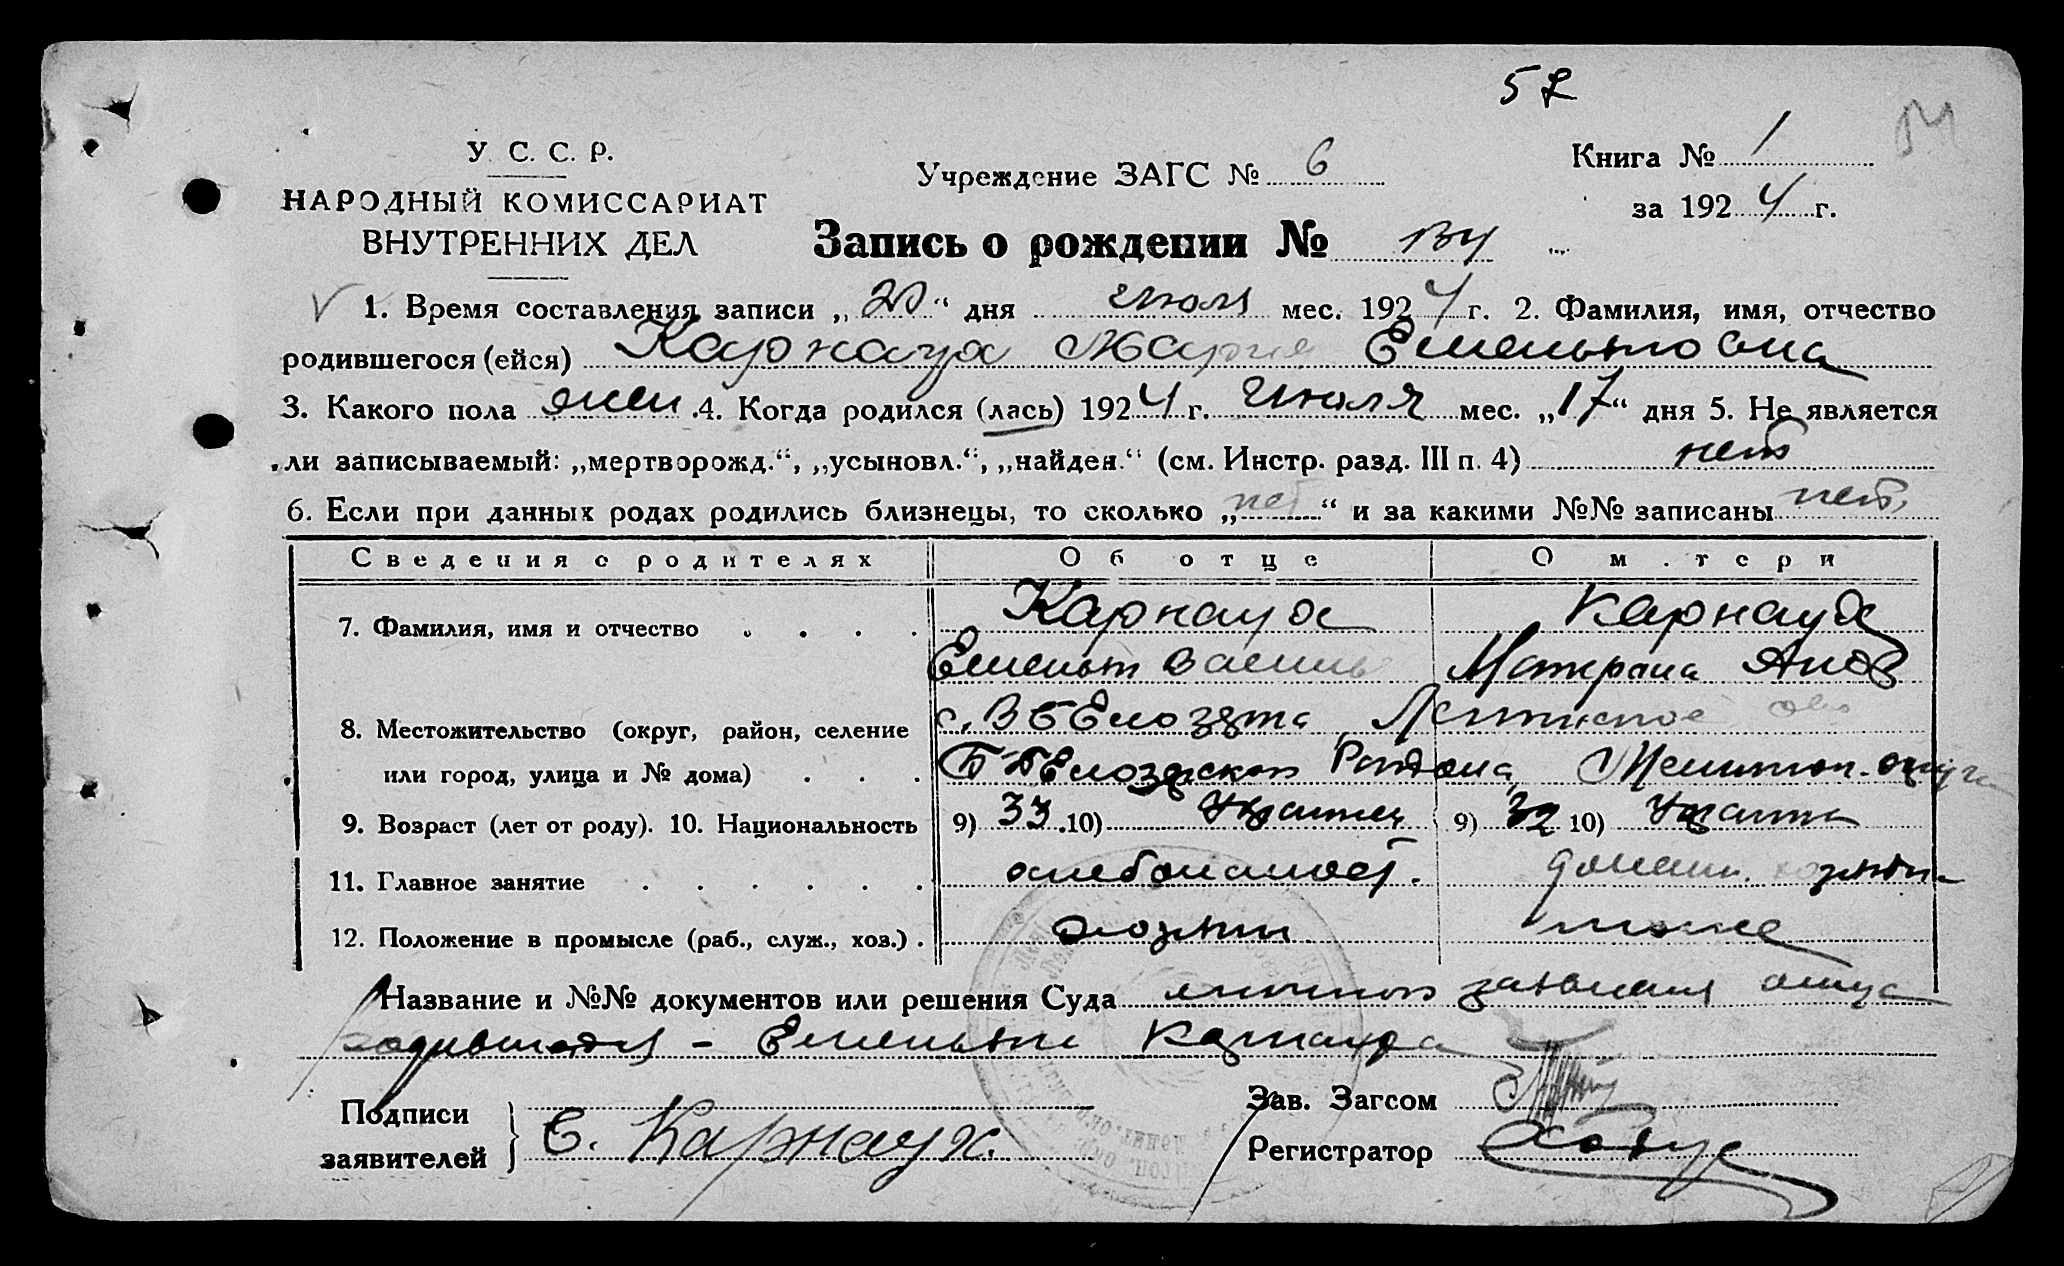 57
У. С. С. Р.
НАРОДНЫЙ КОМИССАРИАТ
ВНУТРЕННИХ ДЕЛ
Учреждение ЗАГС № 6
Книга № 1
за 1924 г.
Запись о рождении №
1. Время составления записи „20“ дня июля мес. 1924 г. 2. Фамилия, имя, отчество
родившегося (ейся) Карнауха Мария Емельяновна
3. Какого пола жен. 4. Когда родился (лась) 1924 г. Июля мес. „17“ дня 5. Не является
ли записываемый: „мертворожд.“, „усыновл.“, „найден.“ (см. Инстр. разд. III п. 4) нет
6. Если при данных родах родились близнецы, то сколько „нет“ и за какими №№ записаны нет
Сведения о родителях Об отце О м.тери
7. Фамилия, имя и отчество Карнауха Карнауха
Емельян Василь Матрена
8. Местожительство (округ, район, селение с. В Белозерка
или город, улица и № дома) Района
9. Возраст (лет от роду). 10. Национальность 9) 33. 10) Украинец 9) 32 10) Украинка
11. Главное занятие хлебопашест. домашн.
12. Положение в промысле (раб., служ., хоз.) хозяин
Название и №№ документов или решения Суда личное заявление отца
родившейся – Емельяна Карнауха
Подписи
заявителей
Е. Карнаух.
Зав. Загсом
Регистратор